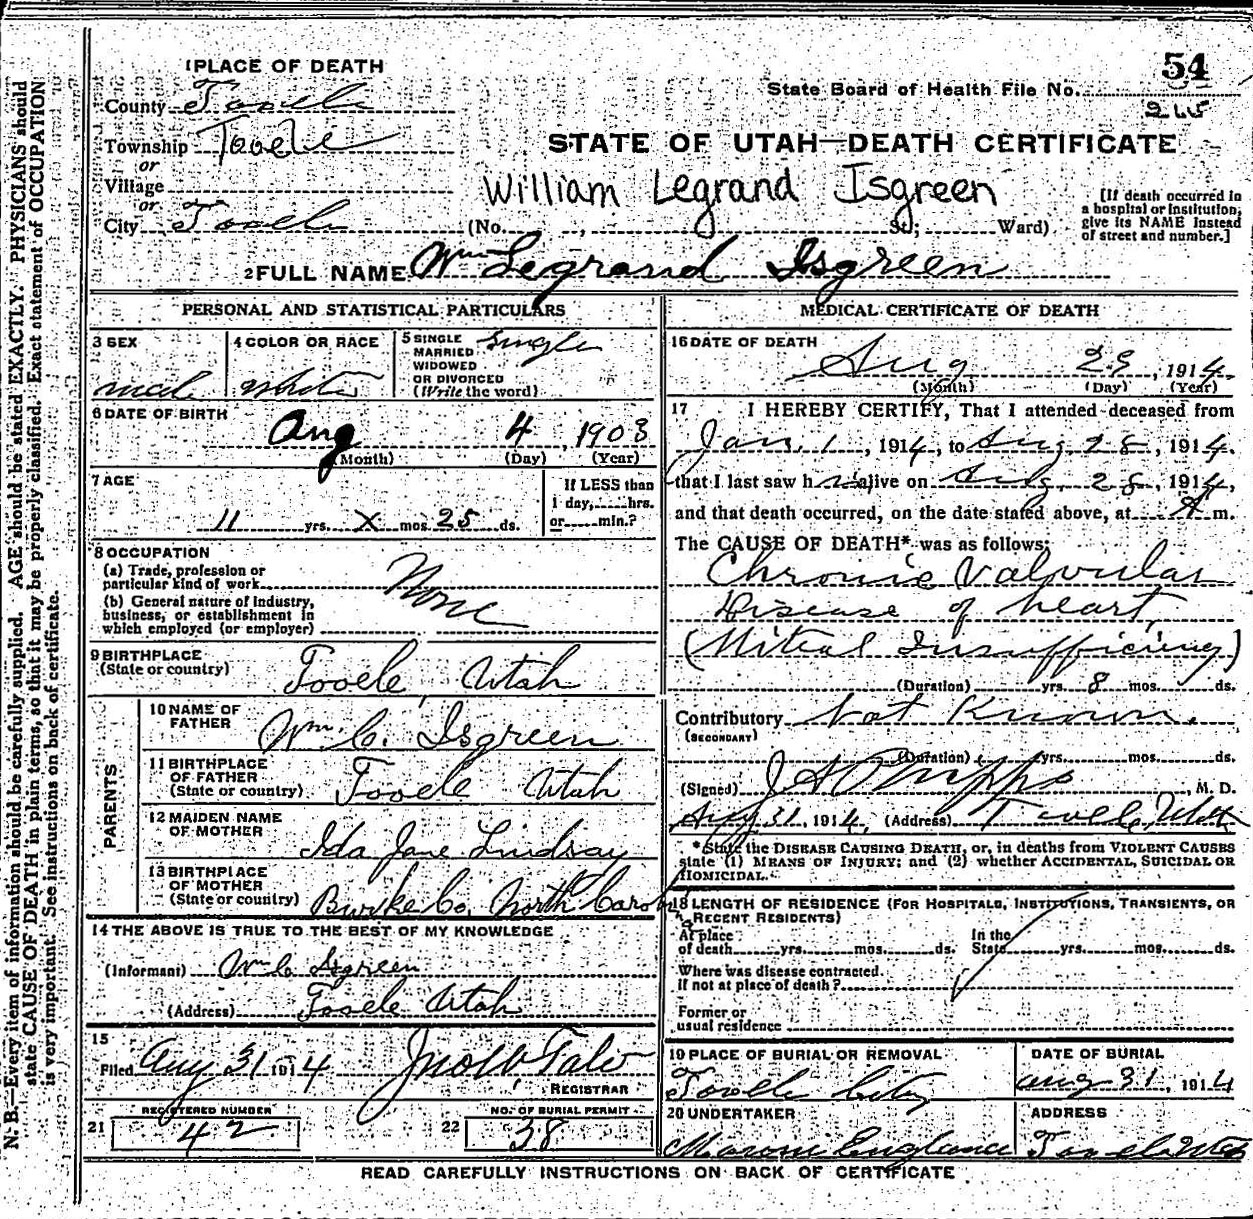 1 PLACE OF DEATH
County Tooele
Township Tooele
or
Village
or
City Tooele
54
State Board of Health File No.
215
STATE OF UTAH—DEATH CERTIFICATE
William Legrand Isgreen
(No. , St; Ward)
[If death occurred in
a hospital or institution,
give its NAME instead
of street and number.]
2 FULL NAME Wm Legrand Isgreen
PERSONAL AND STATISTICAL PARTICULARS
3 SEX
male
4 COLOR OR RACE
white
5 SINGLE
MARRIED
WIDOWED
OR DIVORCED
(Write the word)
Single
6 DATE OF BIRTH
Aug 4, 1903
(Month) (Day) (Year)
7 AGE
11 yrs. X mos. 25 ds.
If LESS than
1 day, hrs.
or min.?
8 OCCUPATION
(a) Trade, profession or
particular kind of work
None
(b) General nature of industry,
business, or establishment in
which employed (or employer)
9 BIRTHPLACE
(State or country)
Tooele, Utah
PARENTS
10 NAME OF
FATHER
Wm. C. Isgreen
11 BIRTHPLACE
OF FATHER
(State or country)
Tooele Utah
12 MAIDEN NAME
OF MOTHER
Ida Jane Lindsay
13 BIRTHPLACE
OF MOTHER
(State or country)
Burke Co, North Carolina
14 THE ABOVE IS TRUE TO THE BEST OF MY KNOWLEDGE
(Informant) Wm C Isgreen
(Address) Tooele Utah
15
Filed Aug 31 1914
REGISTRAR
21
REGISTERED NUMBER
42
22
NO. OF BURIAL PERMIT
38
MEDICAL CERTIFICATE OF DEATH
16 DATE OF DEATH
Aug 29, 1914
(Month) (Day) (Year)
17 I HEREBY CERTIFY, That I attended deceased from
Jan. 1, 1914, to Aug 28, 1914.
that I last saw h im alive on Aug. 28, 1914,
and that death occurred, on the date stated above, at A m.
The CAUSE OF DEATH* was as follows:
Chronic Valvular
Disease of heart,
(Mitral Insufficiency)
(Duration) yrs. 8 mos. ds.
Contributory Not Known.
(SECONDARY)
(Duration) yrs. mos. ds.
(Signed) J A Phipps, M. D.
Aug 31, 1914, (Address) Tooele, Utah
*State the DISEASE CAUSING DEATH, or, in deaths from VIOLENT CAUSES
state (1) MEANS OF INJURY; and (2) whether ACCIDENTAL, SUICIDAL OR
HOMICIDAL.
18 LENGTH OF RESIDENCE (FOR HOSPITALS, INSTITUTIONS, TRANSIENTS, OR
RECENT RESIDENTS)
At place
of death yrs. mos. ds.
In the
State yrs. mos. ds.
Where was disease contracted.
if not at place of death?
Former or
usual residence
19 PLACE OF BURIAL OR REMOVAL
Tooele City
DATE OF BURIAL
Aug 31, 1914
20 UNDERTAKER
Maroni England
ADDRESS
Tooele Utah
READ CAREFULLY INSTRUCTIONS ON BACK OF CERTIFICATE
N. B.—Every item of information should be carefully supplied. AGE should be stated EXACTLY. PHYSICIANS should
state CAUSE OF DEATH in plain terms, so that it may be properly classified. Exact statement of OCCUPATION
is very important. See instructions on back of certificate.